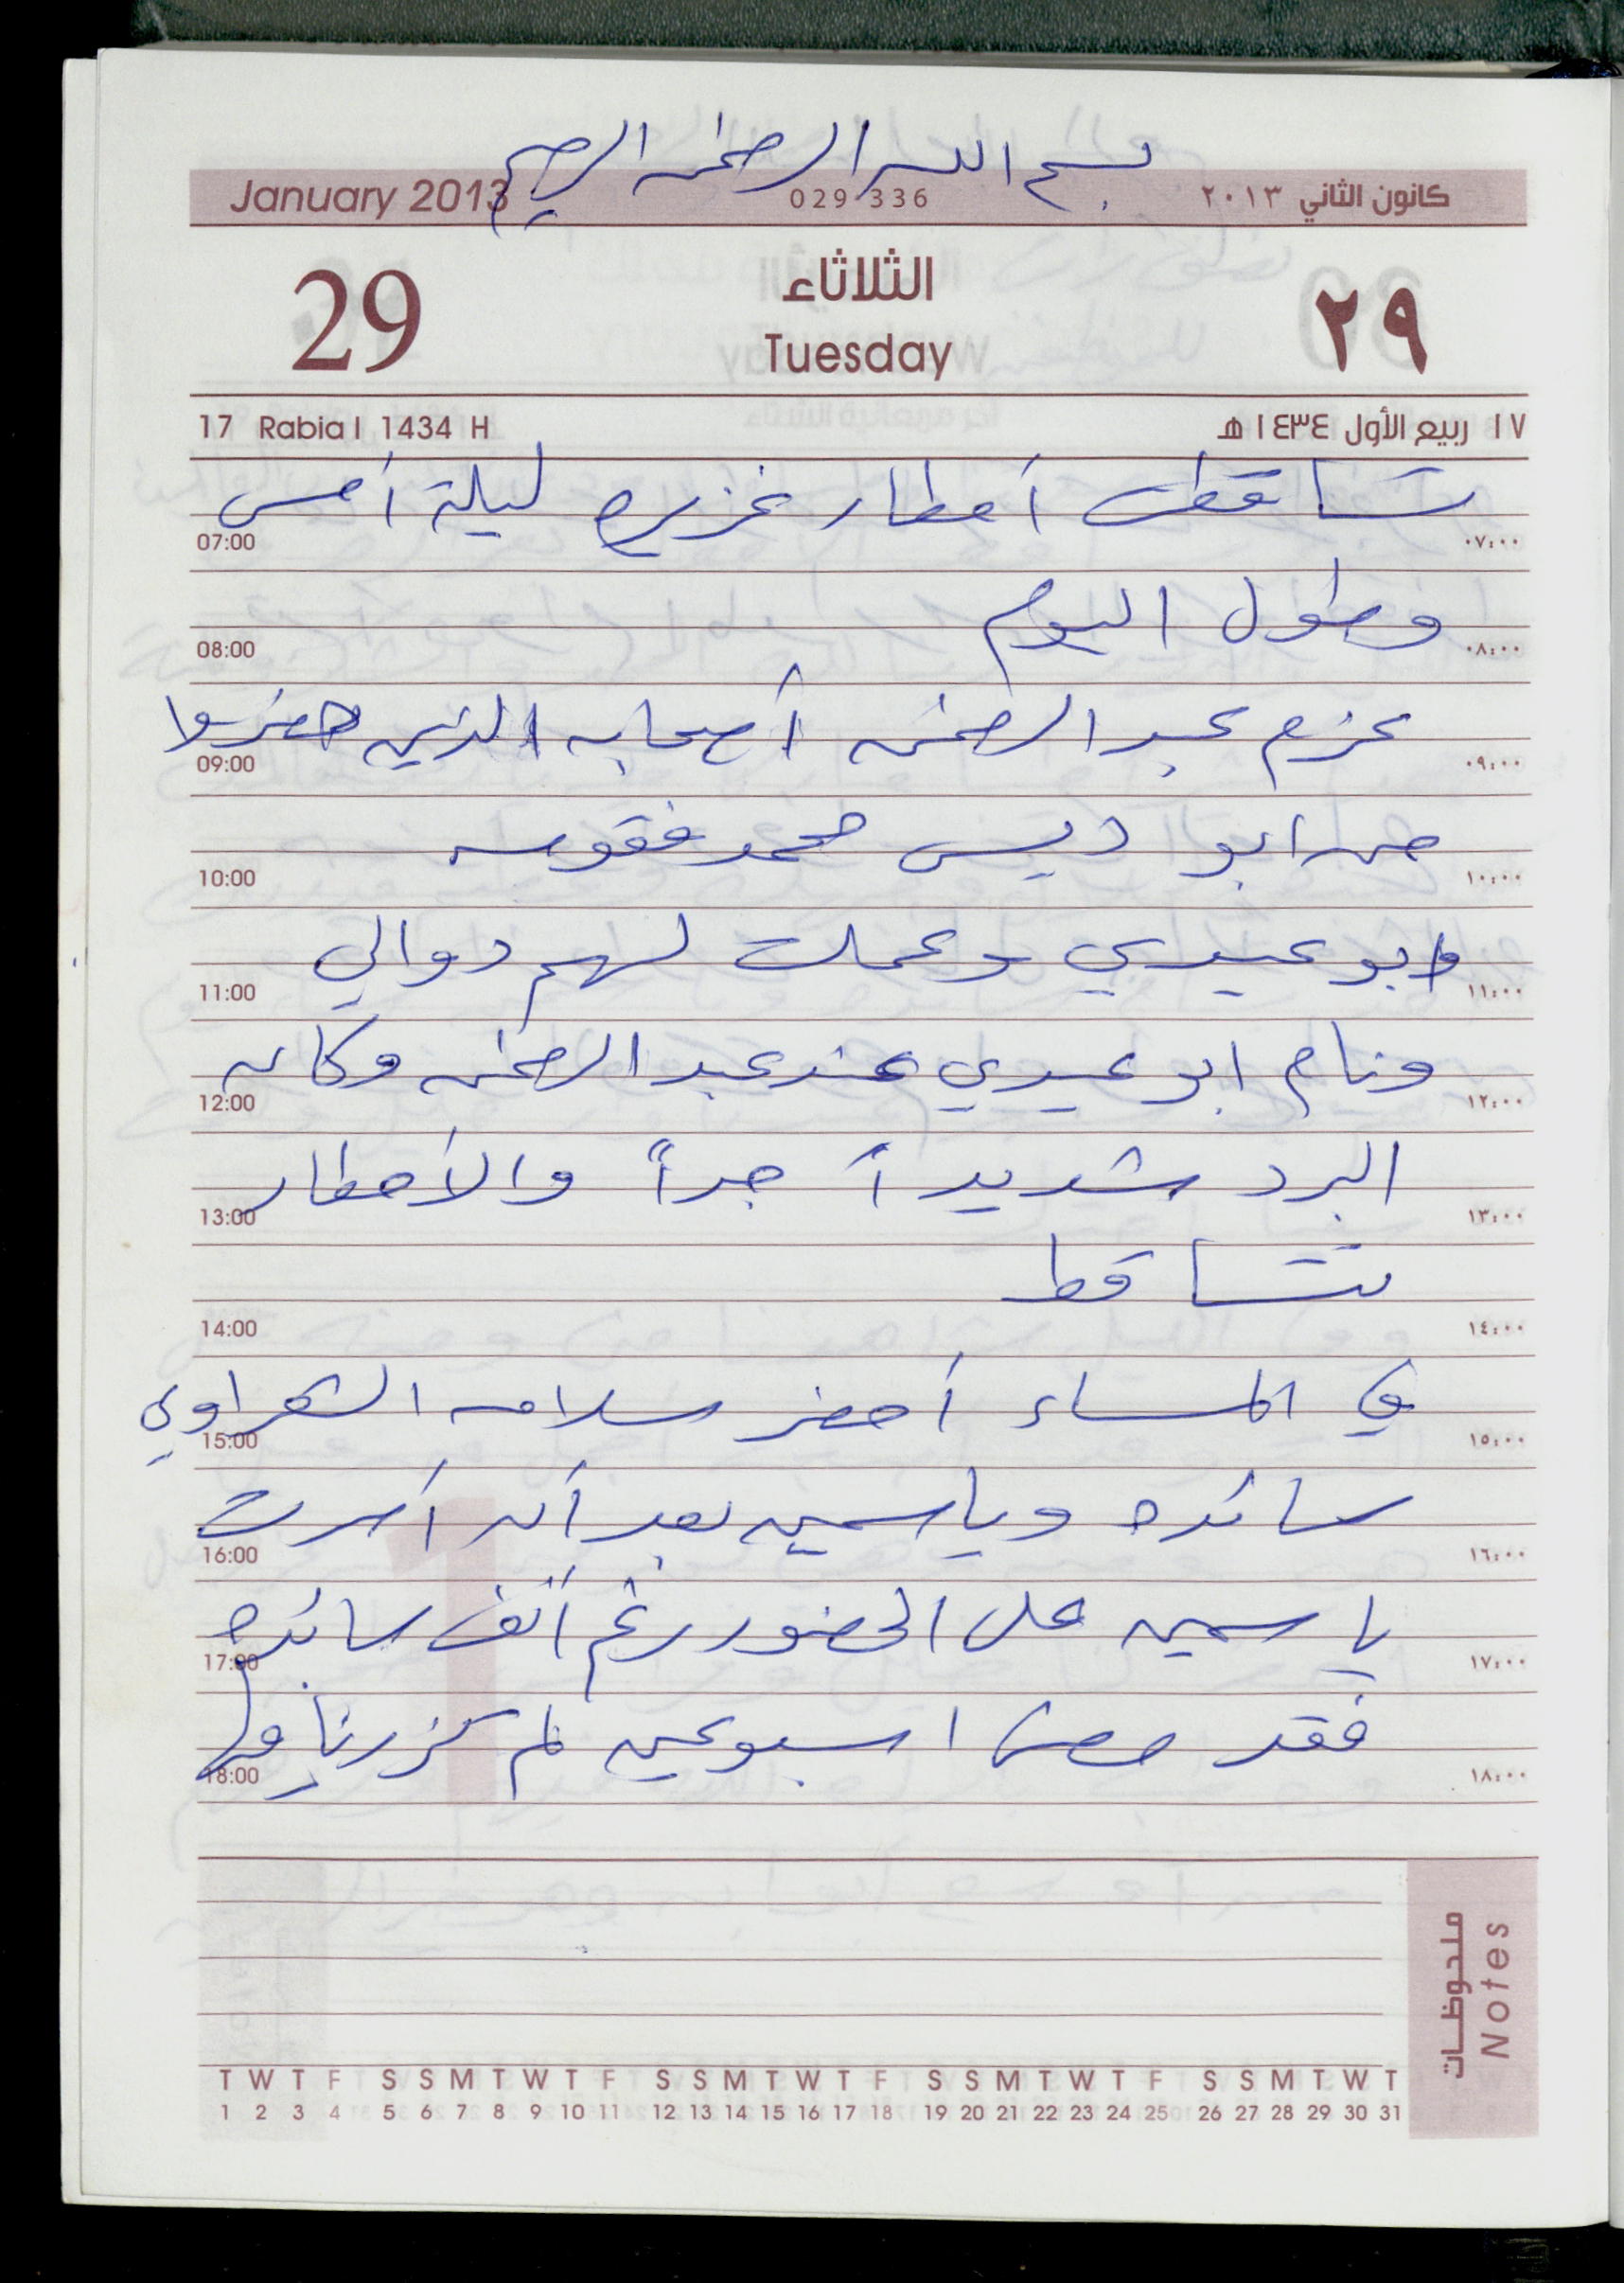 بسم الله الرحمن الرحيم
January 2013 029-336 كانون الثاني ٢٠١٣
29 الثلاثاء ٢٩
Tuesday
17 Rabia I 1434 H ١٧ ربيع الأول ١٤٣٤ هـ
تساقطت أمطار غزيره ليلة أمس
07:00 ٠٧:٠٠
وطول اليوم
08:00 ٠٨:٠٠
عزم عبد الرحمن أصحابه الذين حضروا
09:00 ٠٩:٠٠
من ابو ديس محمد فقوسه
10:00 ١٠:٠٠
وابو عيدي وعملت لهم دوالي
11:00 ١١:٠٠
ونام ابو عيدي عند عبد الرحمن وكان
12:00 ١٢:٠٠
البرد شديداً جداً والأمطار
13:00 ١٣:٠٠
تتساقط
14:00 ١٤:٠٠
في المساء أحضر سلامه الشعراوي
15:00 ١٥:٠٠
سائده وياسمين بعد أن أصرت
16:00 ١٦:٠٠
ياسمين على الحضور رغم أنف سائده
17:00 ١٧:٠٠
فقد مضى اسبوعين لم تزرنا فيها
18:00 ١٨:٠٠
ملحوظات
Notes
T W T F S S M T W T F S S M T W T F S S M T W T F S S M T W T
1 2 3 4 5 6 7 8 9 10 11 12 13 14 15 16 17 18 19 20 21 22 23 24 25 26 27 28 29 30 31